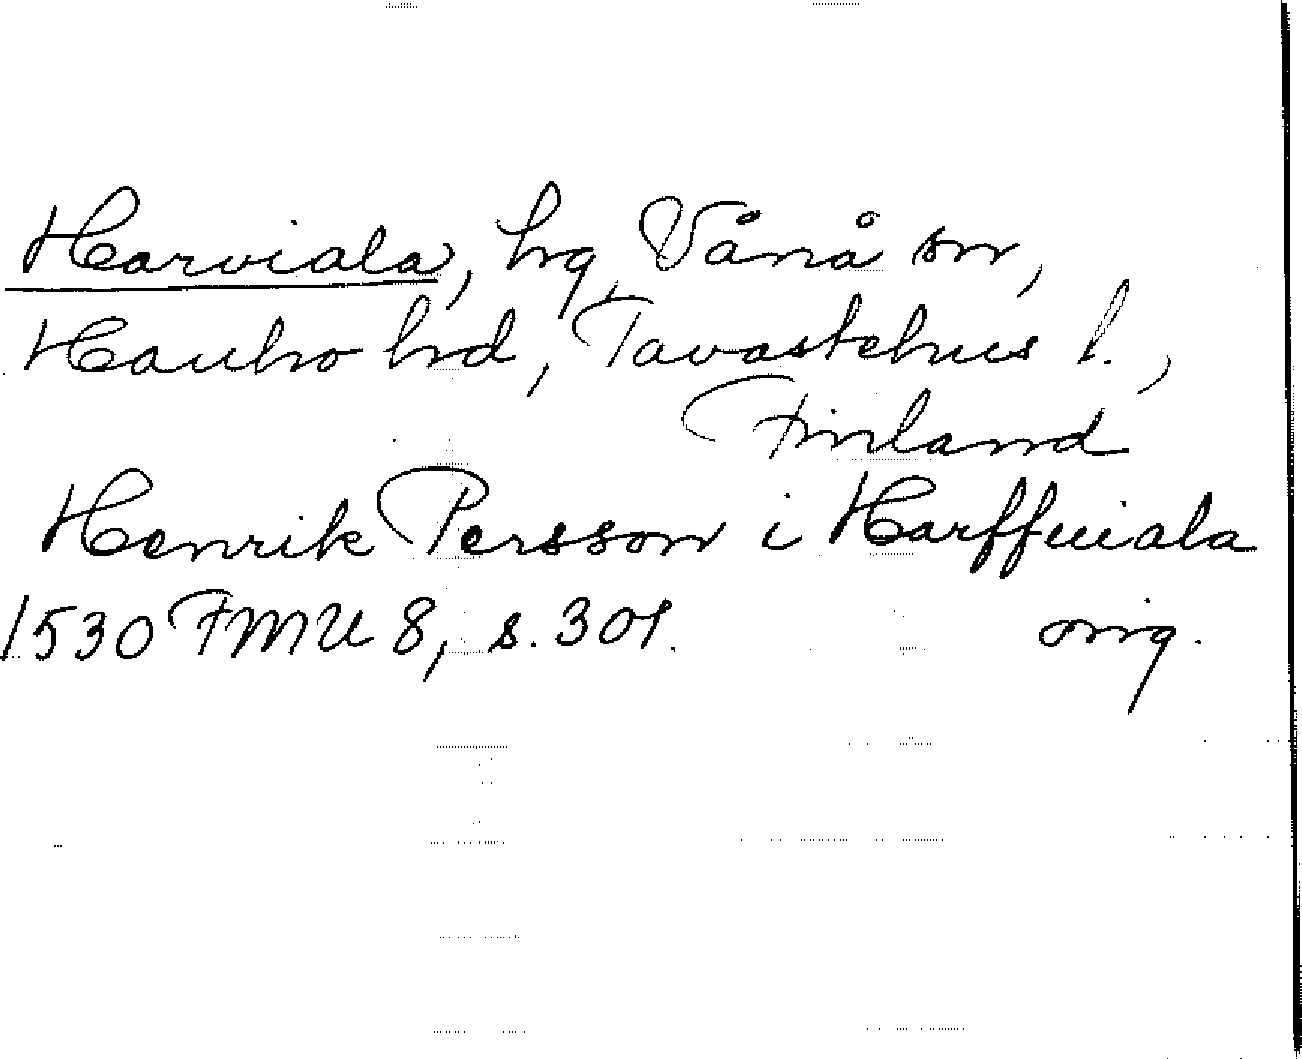 Harviala, hg, Vånå sn,
Hauho hd, Tavastehus l.,
Finland
Henrik Persson i Harffuiala
1530 FMU 8, s. 301. orig.